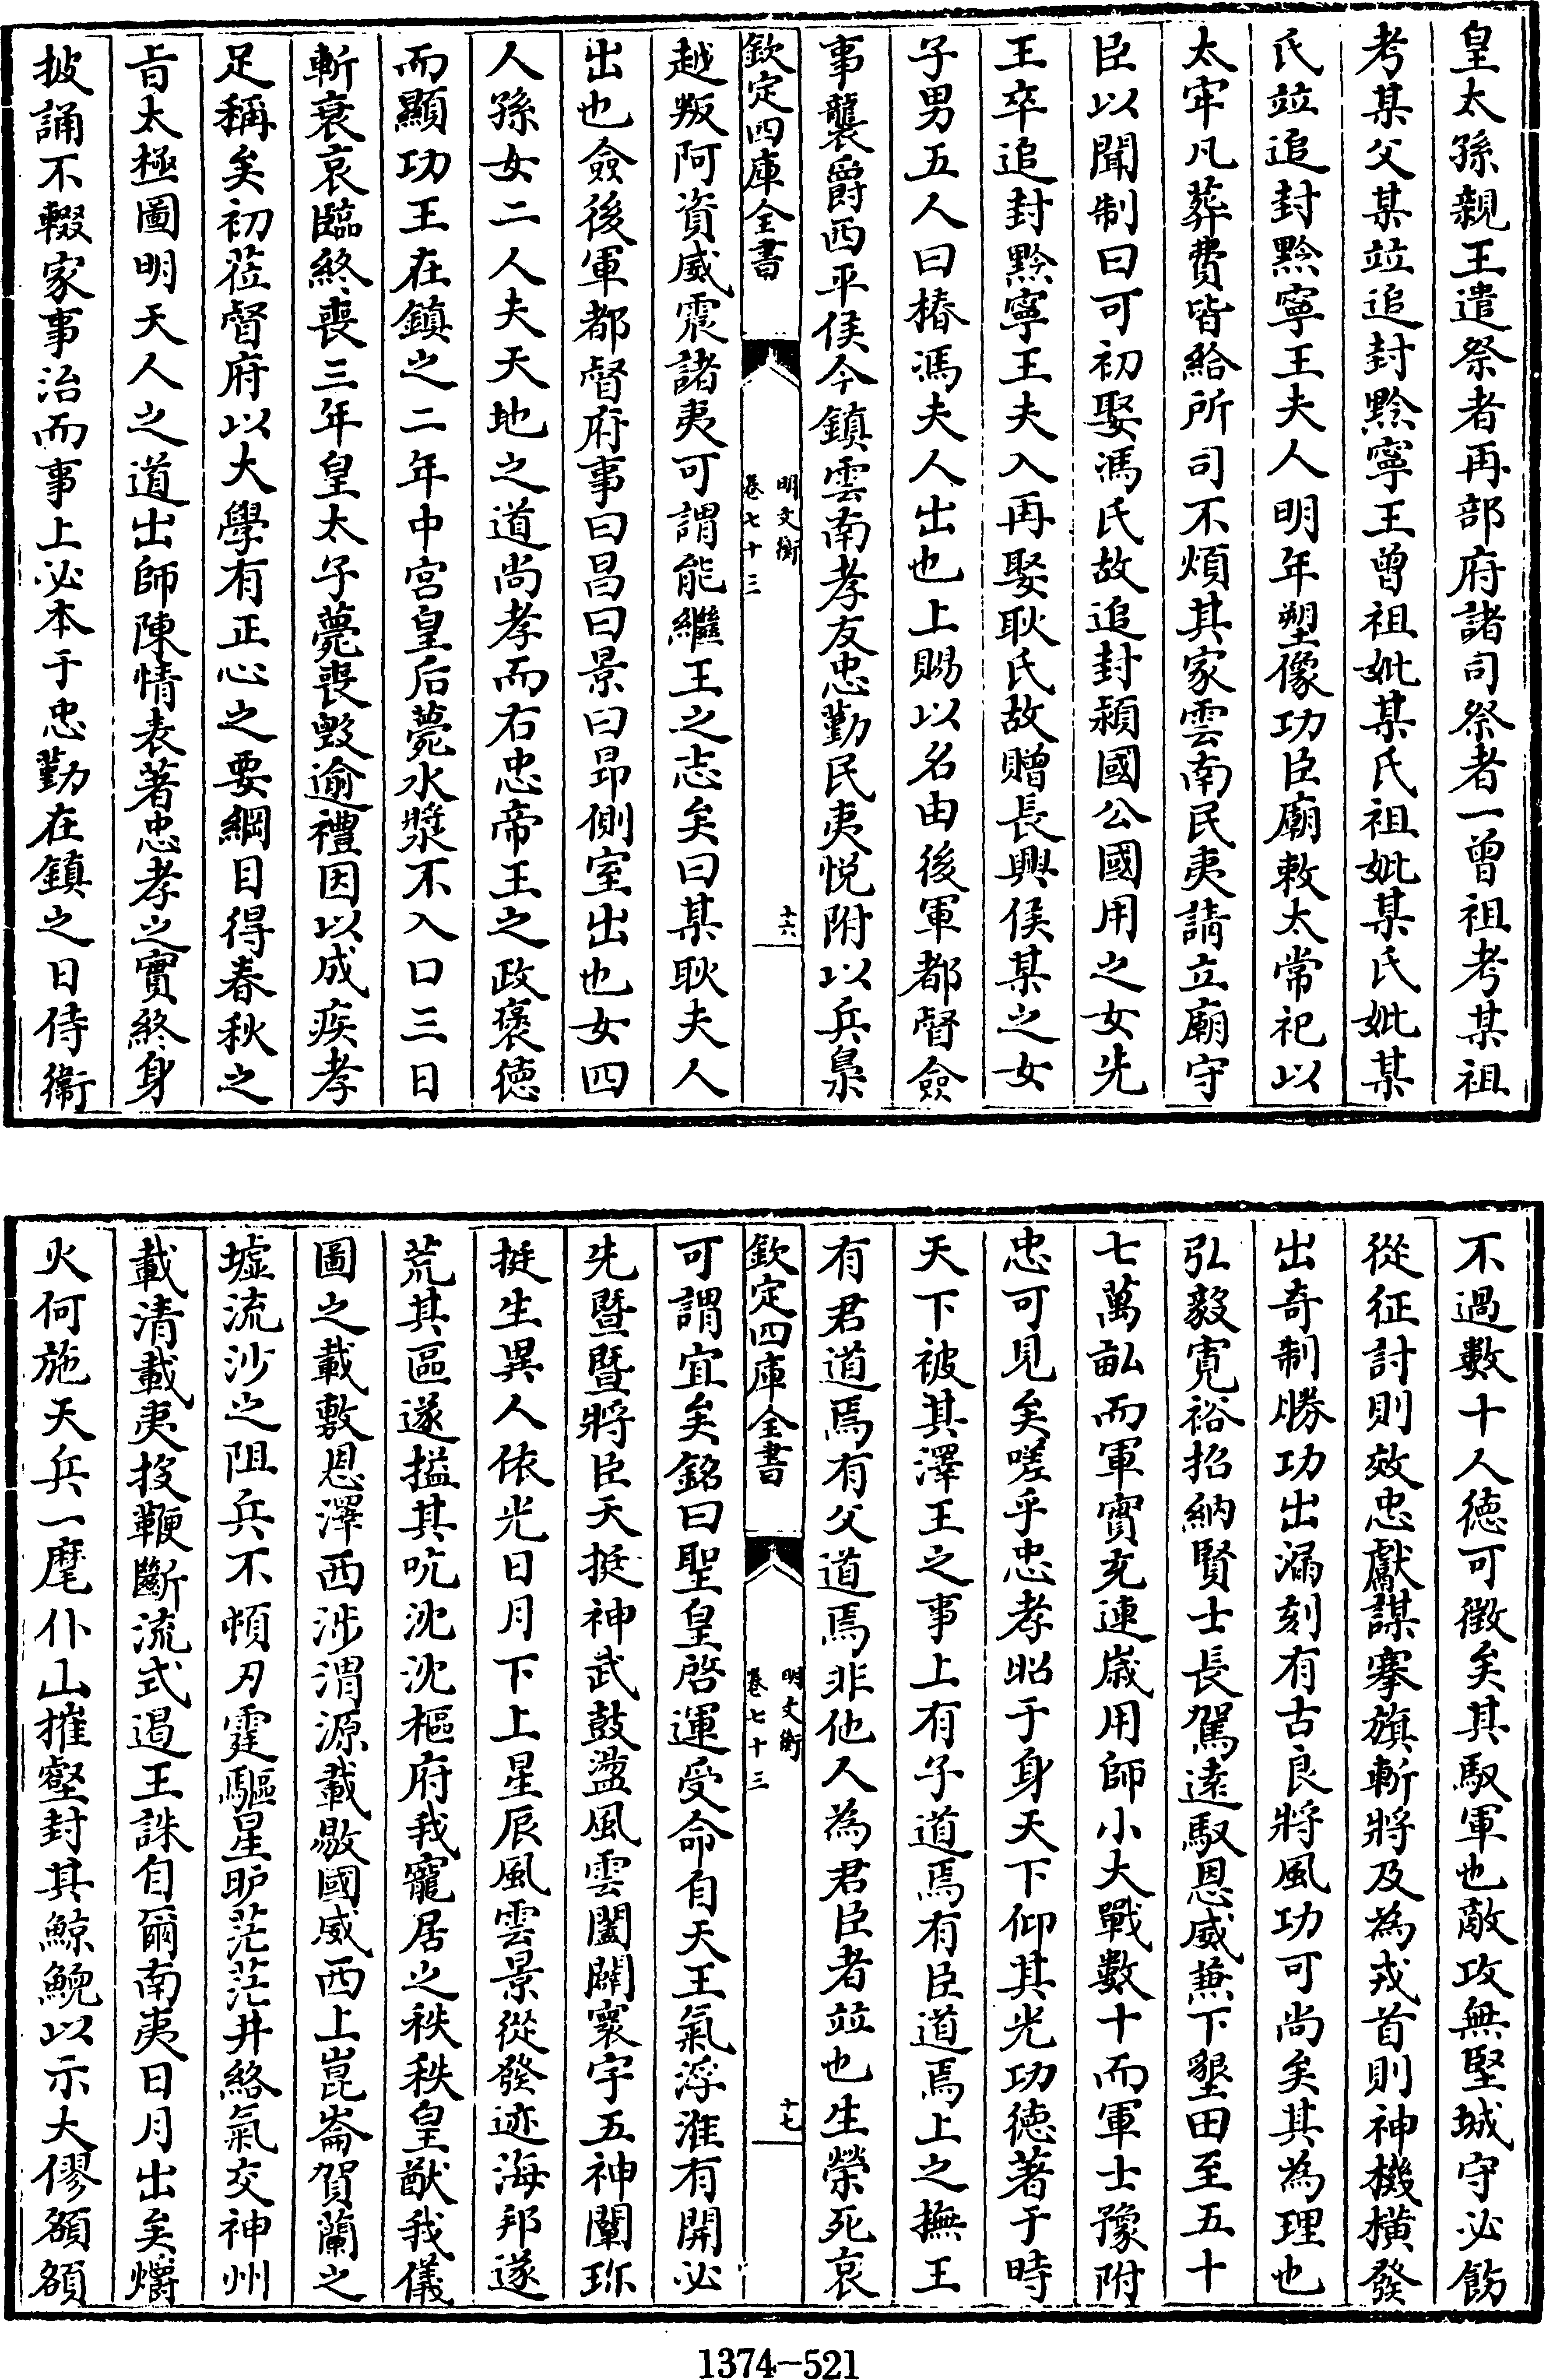 皇太孫親王遣祭者再部府諸司祭者一曾祖考某祖
考某父某竝追封黔寧王曾祖妣某氏祖妣某氏妣某
氏竝追封黔寧王夫人明年塑像功臣廟敕太常祀以
太牢凡葬費皆給所司不煩其家雲南民夷請立廟守
臣以聞制曰可初娶馮氏故追封潁國公國用之女先
王卒追封黔寧王夫入再娶耿氏故贈長興侯某之女
子男五人曰椿馮夫人出也上賜以名由後軍都督僉
事襲爵西平侯今鎮雲南孝友忠勤民夷悦附以兵梟
欽定四庫全書
明文衡
卷七十三
十六
越叛阿資威震諸夷可謂能繼王之志矣曰某耿夫人
出也僉後軍都督府事曰昌曰景曰昂側室出也女四
人孫女二人夫天地之道尚孝而右忠帝王之政褒徳
而顯功王在鎮之二年中宮皇后薨水漿不入口三日
斬衰哀臨終喪三年皇太子薨喪毁逾禮因以成疾孝
足稱矣初莅督府以大學有正心之要綱目得春秋之
㫖太極圖明天人之道出師陳情表著忠孝之實終身
披誦不輟家事治而事上必本于忠勤在鎮之日侍衞
不過數十人徳可徵矣其馭軍也敵攻無堅城守必飭
從征討則效忠獻謀搴旗斬將及為戎首則神機橫發
出奇制勝功出漏刻有古良將風功可尚矣其為理也
弘毅寛裕招納賢士長駕遠馭恩威兼下墾田至五十
七萬畝而軍實充連嵗用師小大戰數十而軍士豫附
忠可見矣嗟乎忠孝昭于身天下仰其光功徳著于時
天下被其澤王之事上有子道焉有臣道焉上之撫王
有君道焉有父道焉非他人為君臣者竝也生榮死哀
欽定四庫全書
明文衡
卷七十三
十七
可謂宜矣銘曰聖皇啓運受命自天王氣浮淮有開必
先暨暨將臣天挺神武鼓盪風雲闔闢寰宇五神闡珎
挺生異人依光日月下上星辰風雲景從發迹海邦遂
荒其區遂搤其吭沈沈樞府我寵居之秩秩皇猷我儀
圖之載敷恩澤西涉渭源載敭國威西上崑崙賀蘭之
墟流沙之阻兵不頓刃霆驅星馿茫茫井絡氣交神州
載清載夷投鞭斷流式遏王誅自爾南夷日月出矣爝
火何施天兵一麾仆山摧壑封其鯨鯢以示大僇頟頟
1374-521